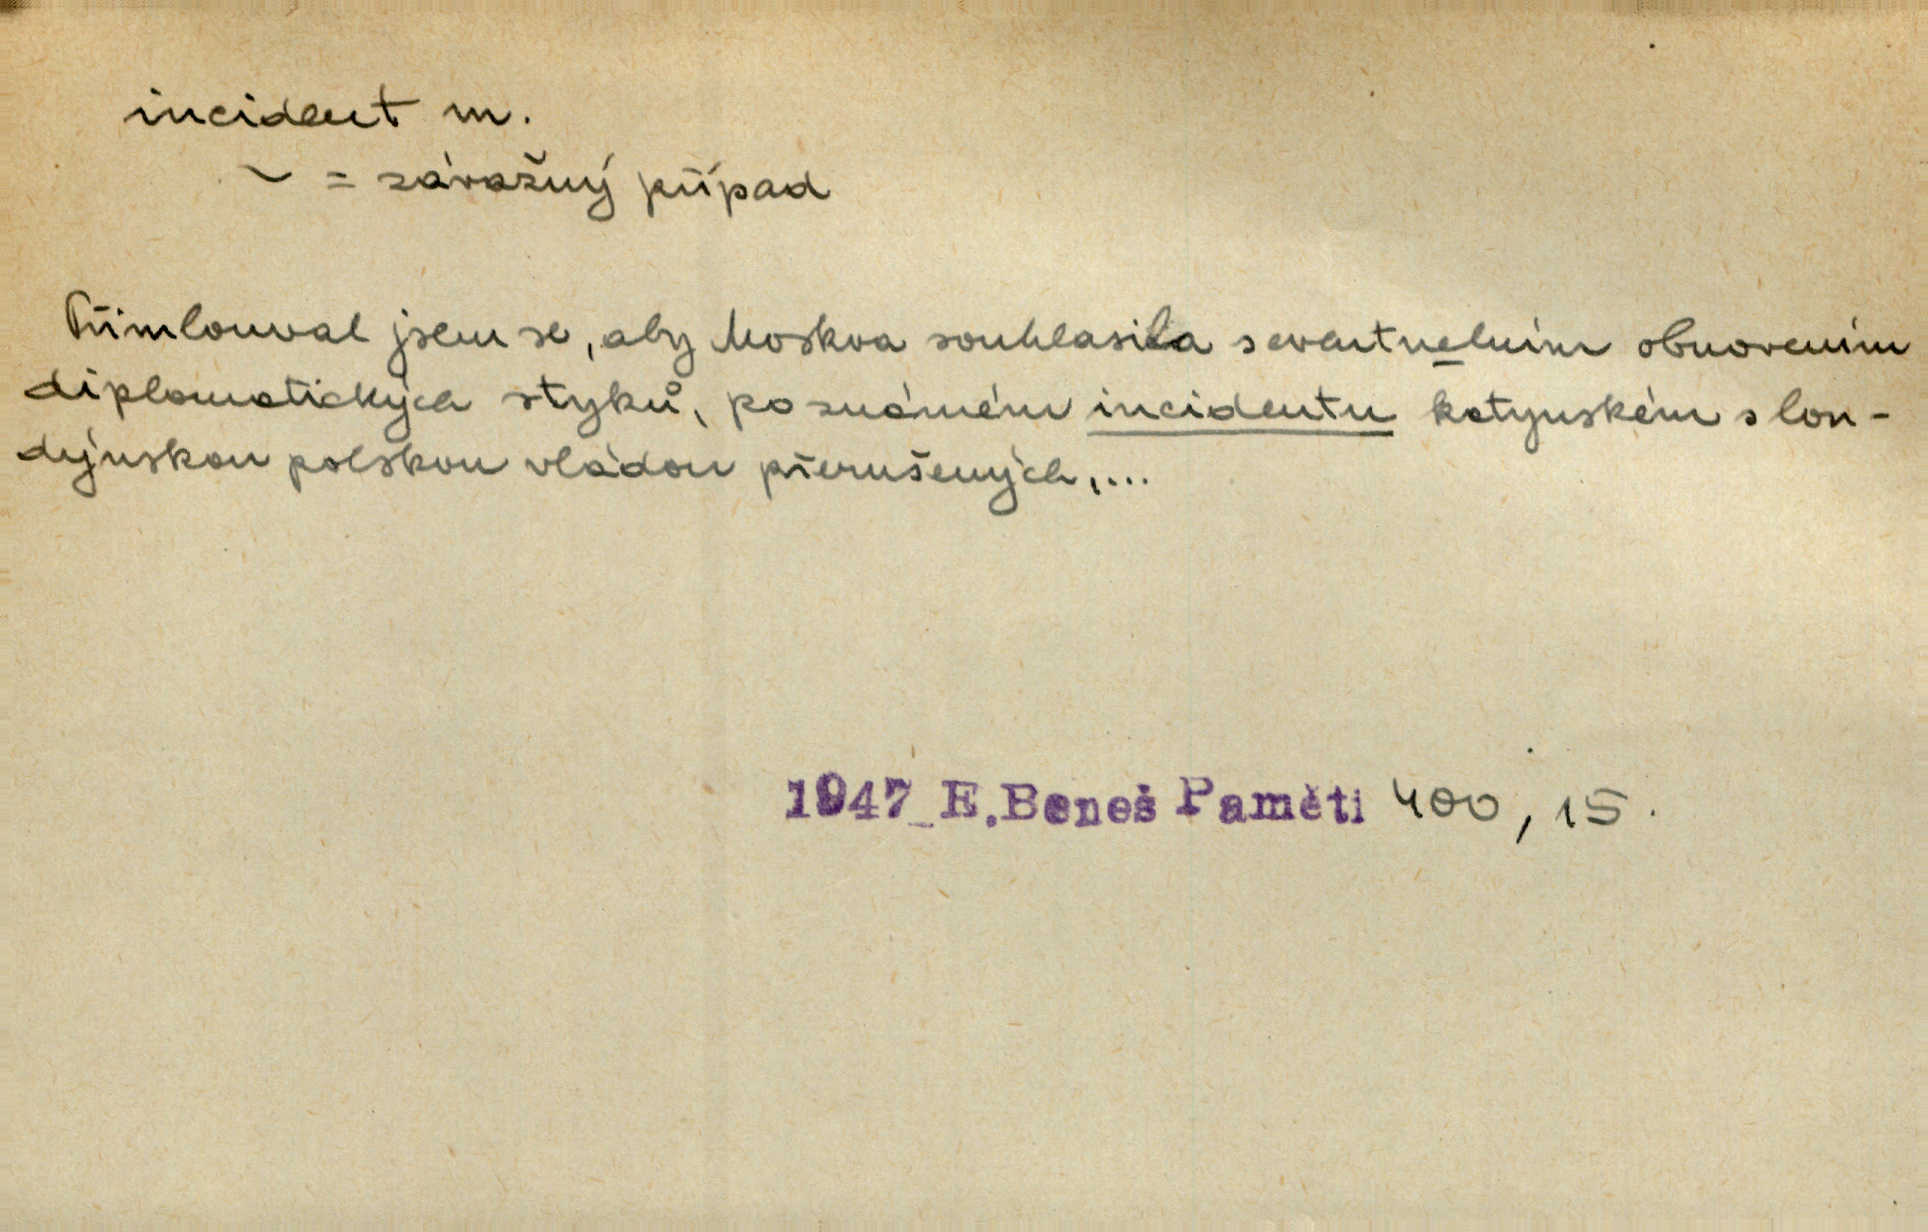 incident m.
~ = závažný případ
Přimlouval jsem se, aby Moskva souhlasila s eventuelním obnovením
diplomatických styků, po známém incidentu katynském s lon-
dýnskou polskou vládou přerušených,...
1947 E. Beneš Paměti 400, 15.